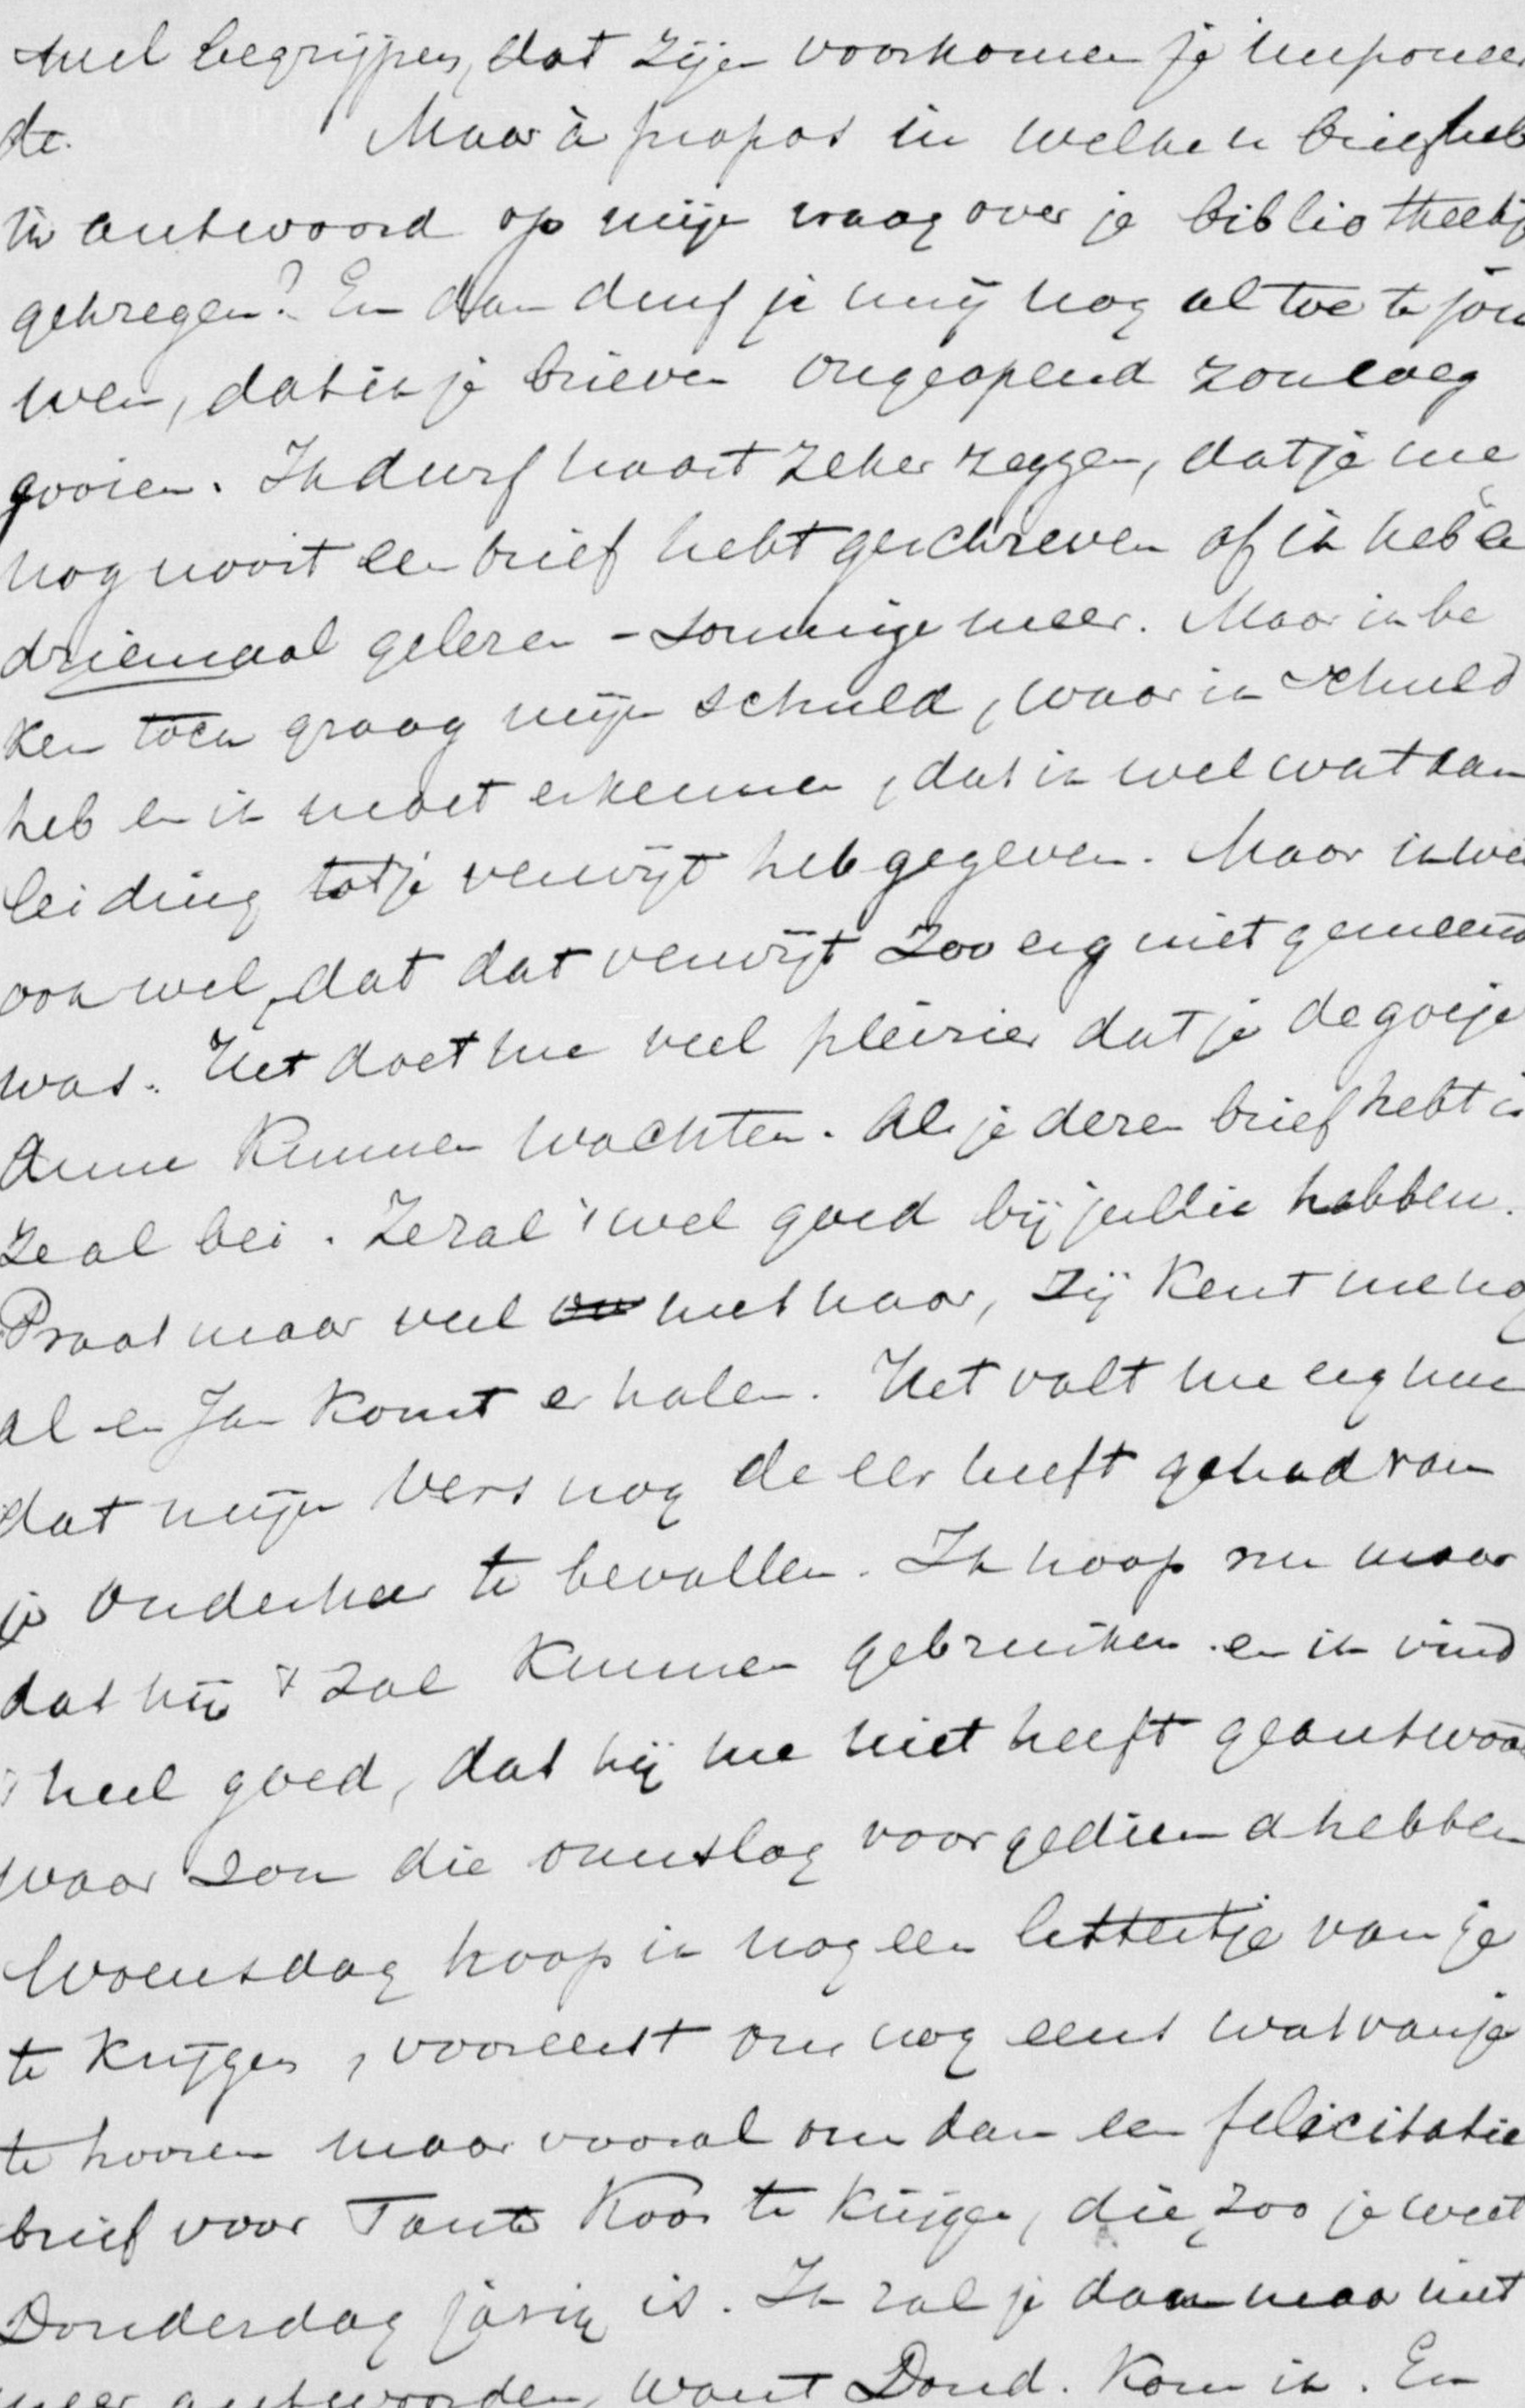 wel begrijpen, dat zijn voorkomen je imponeer
de. Maar à propos in welken brief heb
ik antwoord op mijn vraag over je bibliotheekje
gekregen? En dan durf je mij nog al toe te jou
wen, dat ik je brieven ongeopend zou weg
gooien. Ik durf haast zeker zeggen, dat je me
nog nooit een brief hebt geschreven of ik heb 'em
driemaal gelezen - sommige meer. Maar ik be
ken toch graag mijn schuld, waar ik schuld
heb en ik moet erkennen, dat ik wel wat aan
leiding tot je verwijt heb gegeven. Maar ik weet
ook wel, dat dat verwijt zoo erg niet gemeend
was. Het doet me veel pleizier dat je de goeje
Anne kunnen wachten. Als je dezen brief hebt is
ze al bei . Ze zal 't wel goed bij jullie hebben.
Praat maar veel met haar, zij kent me nog
al en Jan komt er halen. Het valt me erg mee
dat mijn vers nog de eer heeft gehad van
je Ouderheer te bevallen. Ik hoop nu maar
dat hij 't zal kunnen gebruiken en ik vind
't heel goed, dat hij me niet heeft geantwoord
waar zou die omslag voor gediend hebben
Woensdag hoop ik nog een lettertje van je
te krijgen, vooreerst om nog eens wat van je
te hooren maar vooral om dan een felicitatie
brief voor Tante Koos te krijgen, die, zoo je weet
Donderdag jarig is. Ik zal je dan maar niet
meer antwoorden, want Dond. kom ik. En